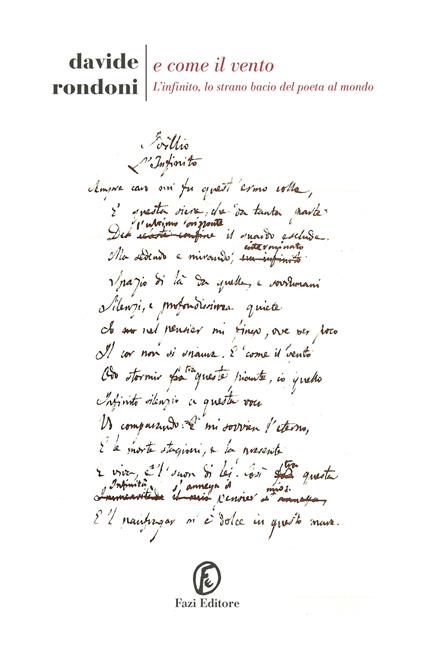 davide
rondoni
e come il vento
L'infinito, lo strano bacio del poeta al mondo
Idillio
L'Infinito
Sempre caro mi fu quest'ermo colle,
E questa siepe, che da tanta parte
l'ultimo orizzonte
De celeste confine il guardo esclude.
interminato
Ma sedendo e mirando, un infinito
Spazio di là da quella, e sovrumani
Silenzi, e profondissima quiete
Io nel pensier mi fingo, ove per poco
Il cor non si spaura. E come il vento
tra
Odo stormir fra queste piante, io quello
Infinito silenzio a questa voce
Vo comparando: E mi sovvien l'eterno,
E le morte stagioni, e la presente
tra
E viva, e 'l suon di lei. Così questa
Infinità s'annega il mio:
Immensitade il pensier
E 'l naufragar m'è dolce in questo mare.
Fe
Fazi Editore